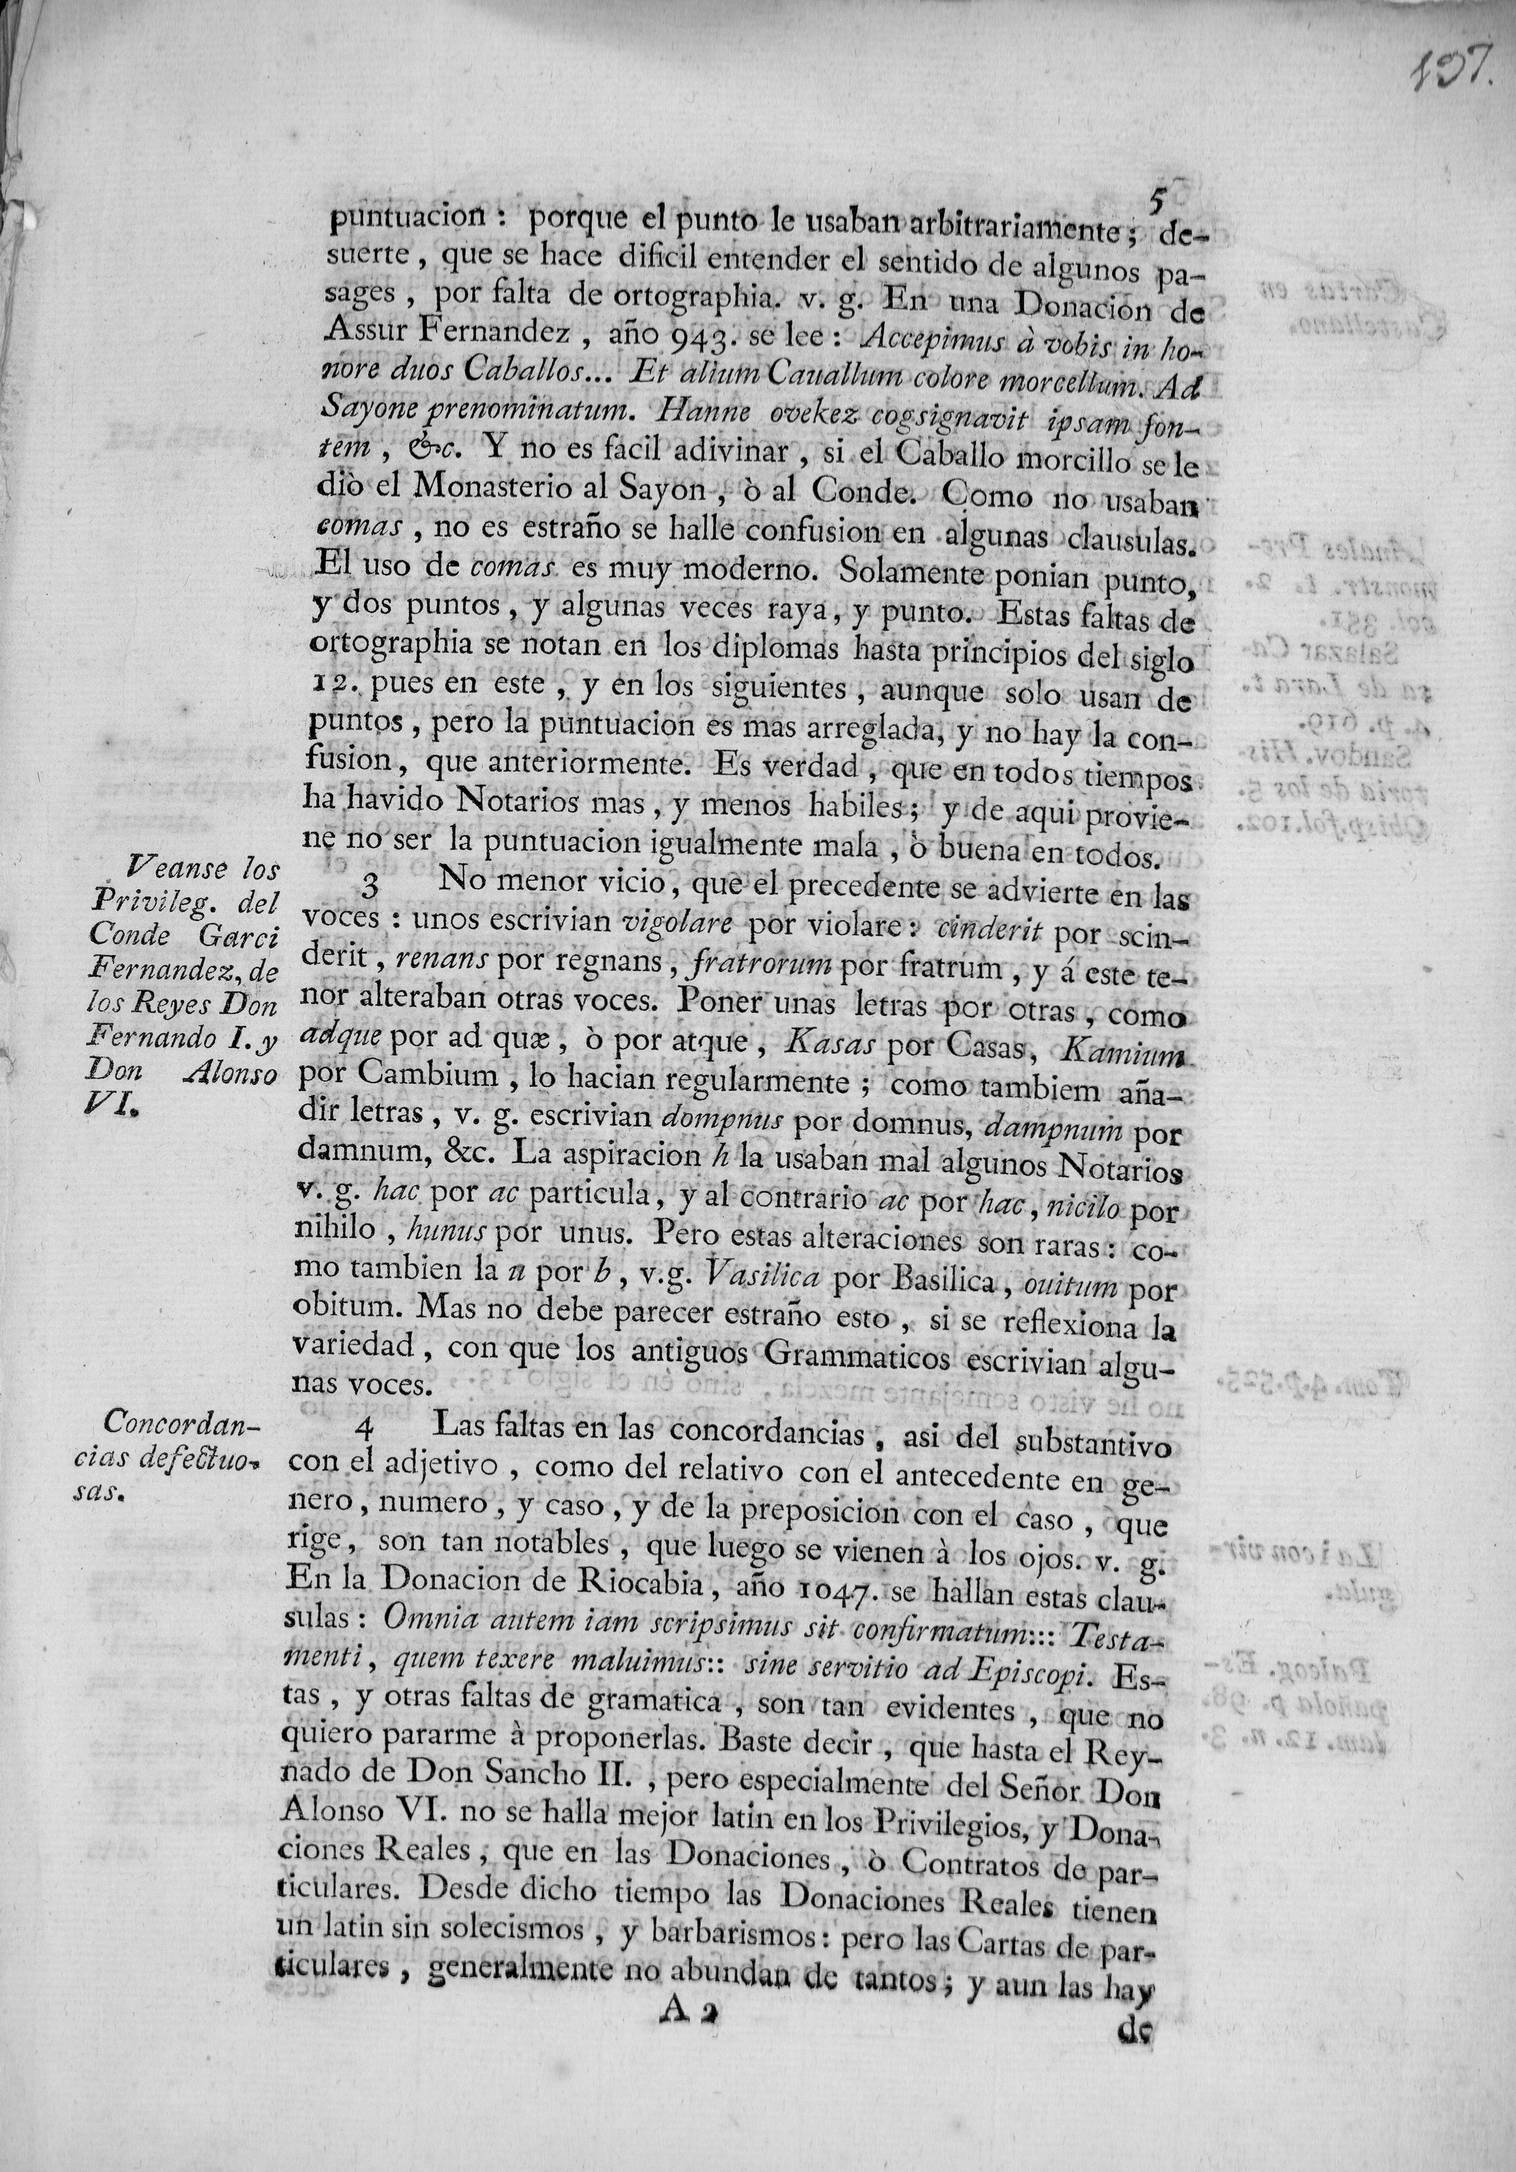 197.
5
puntuacion : porque el punto le usaban arbitrariamente ; de-
suerte , que se hace dificil entender el sentido de algunos pa-
sages , por falta de ortographia. v. g. En una Donacion de
Assur Fernandez , año 943. se lee : Accepimus à vobis in ho-
nore duos Caballos... Et alium Cauallum colore morcellum. Ad
Sayone prenominatum. Hanne ovekez cogsignavit ipsam fon-
tem , &c. Y no es facil adivinar , si el Caballo morcillo se le
diò el Monasterio al Sayon , ò al Conde. Como no usaban
comas , no es estraño se halle confusion en algunas clausulas.
El uso de comas es muy moderno. Solamente ponian punto,
y dos puntos , y algunas veces raya , y punto. Estas faltas de
ortographia se notan en los diplomas hasta principios del siglo
12. pues en este , y en los siguientes , aunque solo usan de
puntos , pero la puntuacion es mas arreglada, y no hay la con-
fusion , que anteriormente. Es verdad , que en todos tiempos
ha havido Notarios mas , y menos habiles ; y de aqui provie-
ne no ser la puntuacion igualmente mala , ò buena en todos.
Veanse los
Privileg. del
Conde Garci
Fernandez, de
los Reyes Don
Fernando I. y
Don Alonso
VI.
3 No menor vicio , que el precedente se advierte en las
voces : unos escrivian vigolare por violare : cinderit por scin-
derit , renans por regnans , fratrorum por fratrum , y á este te-
nor alteraban otras voces. Poner unas letras por otras , como
adque por ad quæ , ò por atque , Kasas por Casas, Kamium
por Cambium , lo hacian regularmente ; como tambiem aña-
dir letras , v. g. escrivian dompnus por domnus, dampnum por
damnum, &c. La aspiracion h la usaban mal algunos Notarios
v. g. hac por ac particula , y al contrario ac por hac , nicilo por
nihilo , hunus por unus. Pero estas alteraciones son raras : co-
mo tambien la u por b , v.g. Vasilica por Basilica , ouitum por
obitum. Mas no debe parecer estraño esto , si se reflexiona la
variedad , con que los antiguos Grammaticos escrivian algu-
nas voces.
Concordan-
cias defectuo-
sas.
4 Las faltas en las concordancias , asi del substantivo
con el adjetivo , como del relativo con el antecedente en ge-
nero , numero , y caso , y de la preposicion con el caso , que
rige , son tan notables , que luego se vienen à los ojos. v. g.
En la Donacion de Riocabia , año 1047. se hallan estas clau-
sulas : Omnia autem iam scripsimus sit confirmatum::: Testa-
menti , quem texere maluimus:: sine servitio ad Episcopi. Es-
tas , y otras faltas de gramatica , son tan evidentes , que no
quiero pararme à proponerlas. Baste decir , que hasta el Rey-
nado de Don Sancho II. , pero especialmente del Señor Don
Alonso VI. no se halla mejor latin en los Privilegios, y Dona-
ciones Reales , que en las Donaciones , ò Contratos de par-
ticulares. Desde dicho tiempo las Donaciones Reales tienen
un latin sin solecismos , y barbarismos : pero las Cartas de par-
ticulares , generalmente no abundan de tantos ; y aun las hay
A 2
de